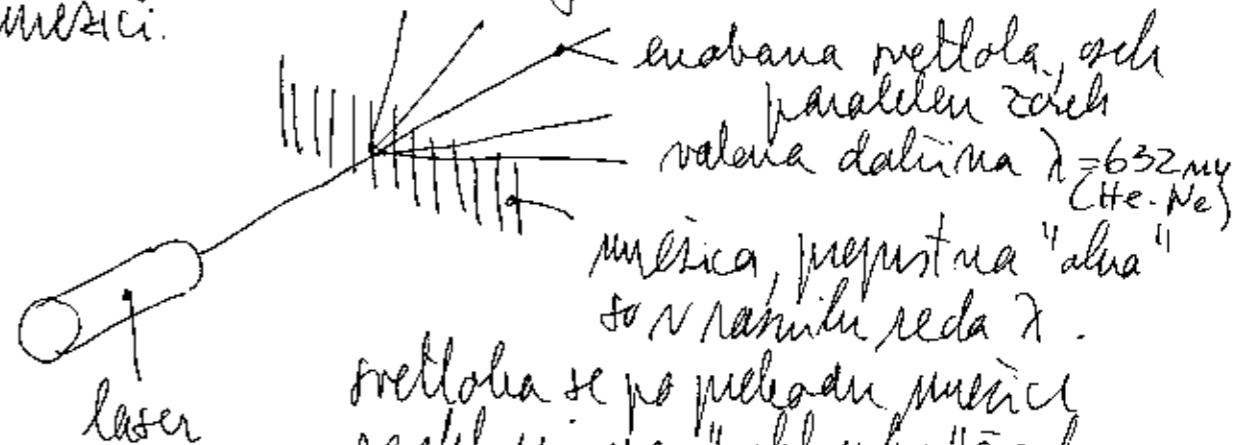 mrežici.
enobarvna svetloba, ozek
paralelen žarek
valovna dolžina λ = 632 nm
(He-Ne)
mrežica, prepustna "okna"
so v razmiku reda λ.
laser
svetloba se po prehodu mrežice